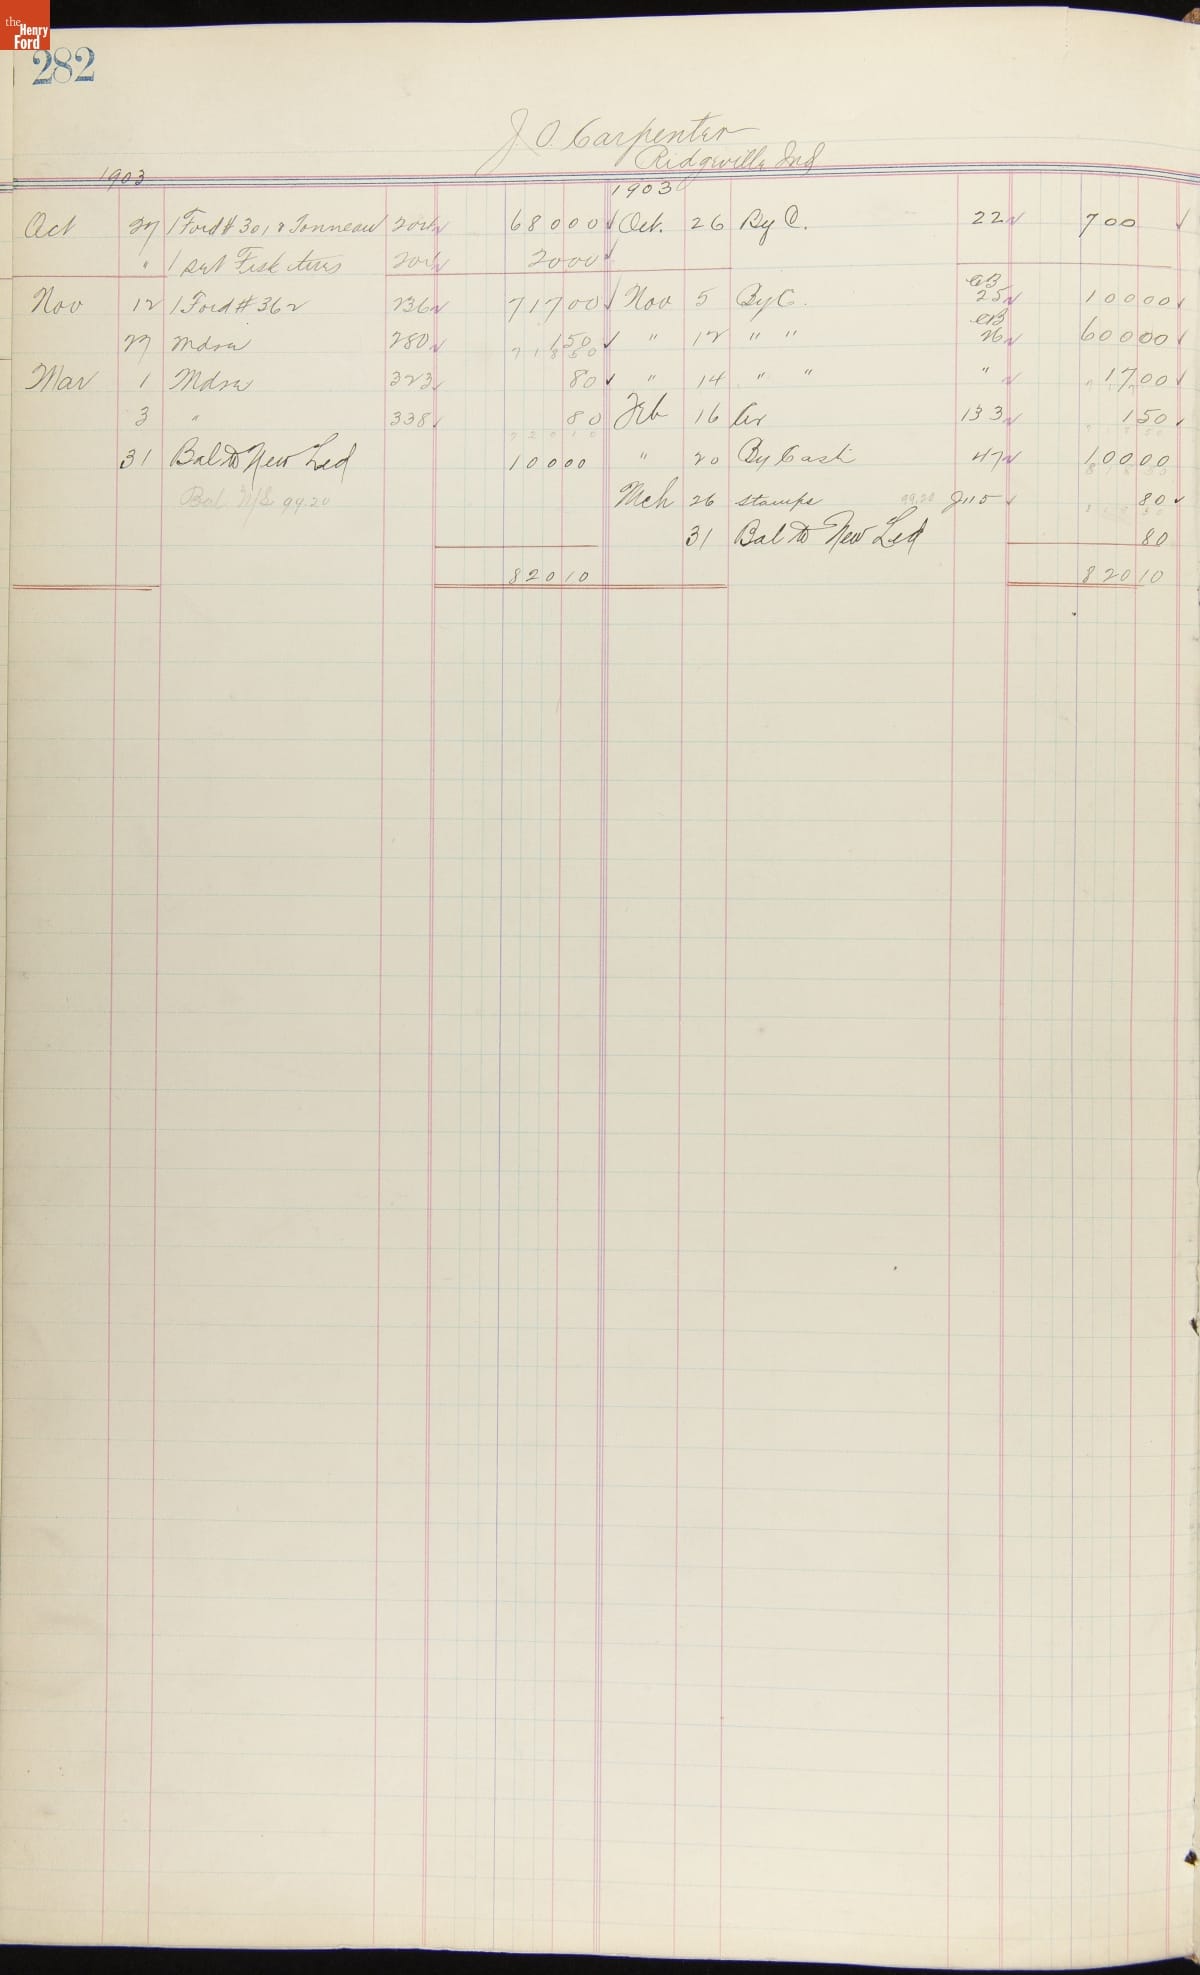 the Henry Ford
282
J. O. Carpenter
Ridgeville Ind
1903 1903
Oct 27 1 Ford # 301 & Tonneau 204 68000 Oct. 26 By C. 22 700
" 1 set Fisk tires 204 2000
Nov 12 1 Ford # 362 236 71700 Nov 5 By C. CB 25 10000
27 Mdse 280 150 " 12 " " CB 26 60000
71850
Mar 1 Mdse 323 80 " 14 " " " 1700
3 " 338 80 Feb 16 Cr 133 150
72010
31 Bal to New Led 10000 " 20 By Cash 47 10000
Bal 99.20 Mch 26 stamps 99.20 J115 80
31 Bal to New Led 80
82010 82010